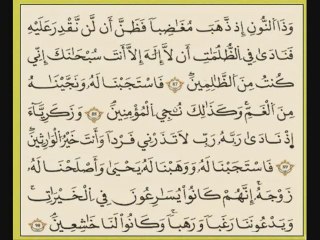 وَذَا ٱلنُّونِ إِذ ذَّهَبَ مُغَٰضِبًا فَظَنَّ أَن لَّن نَّقْدِرَ عَلَيْهِ
فَنَادَىٰ فِي ٱلظُّلُمَٰتِ أَن لَّآ إِلَٰهَ إِلَّآ أَنتَ سُبْحَٰنَكَ إِنِّي
كُنتُ مِنَ ٱلظَّٰلِمِينَ ٨٧ فَٱسْتَجَبْنَا لَهُۥ وَنَجَّيْنَٰهُ
مِنَ ٱلْغَمِّ وَكَذَٰلِكَ نُۨجِي ٱلْمُؤْمِنِينَ ٨٨ وَزَكَرِيَّآ
إِذْ نَادَىٰ رَبَّهُۥ رَبِّ لَا تَذَرْنِي فَرْدًا وَأَنتَ خَيْرُ ٱلْوَٰرِثِينَ
٨٩ فَٱسْتَجَبْنَا لَهُۥ وَوَهَبْنَا لَهُۥ يَحْيَىٰ وَأَصْلَحْنَا لَهُۥ
زَوْجَهُۥٓ إِنَّهُمْ كَانُوا۟ يُسَٰرِعُونَ فِي ٱلْخَيْرَٰتِ
وَيَدْعُونَنَا رَغَبًا وَرَهَبًا وَكَانُوا۟ لَنَا خَٰشِعِينَ ٩٠